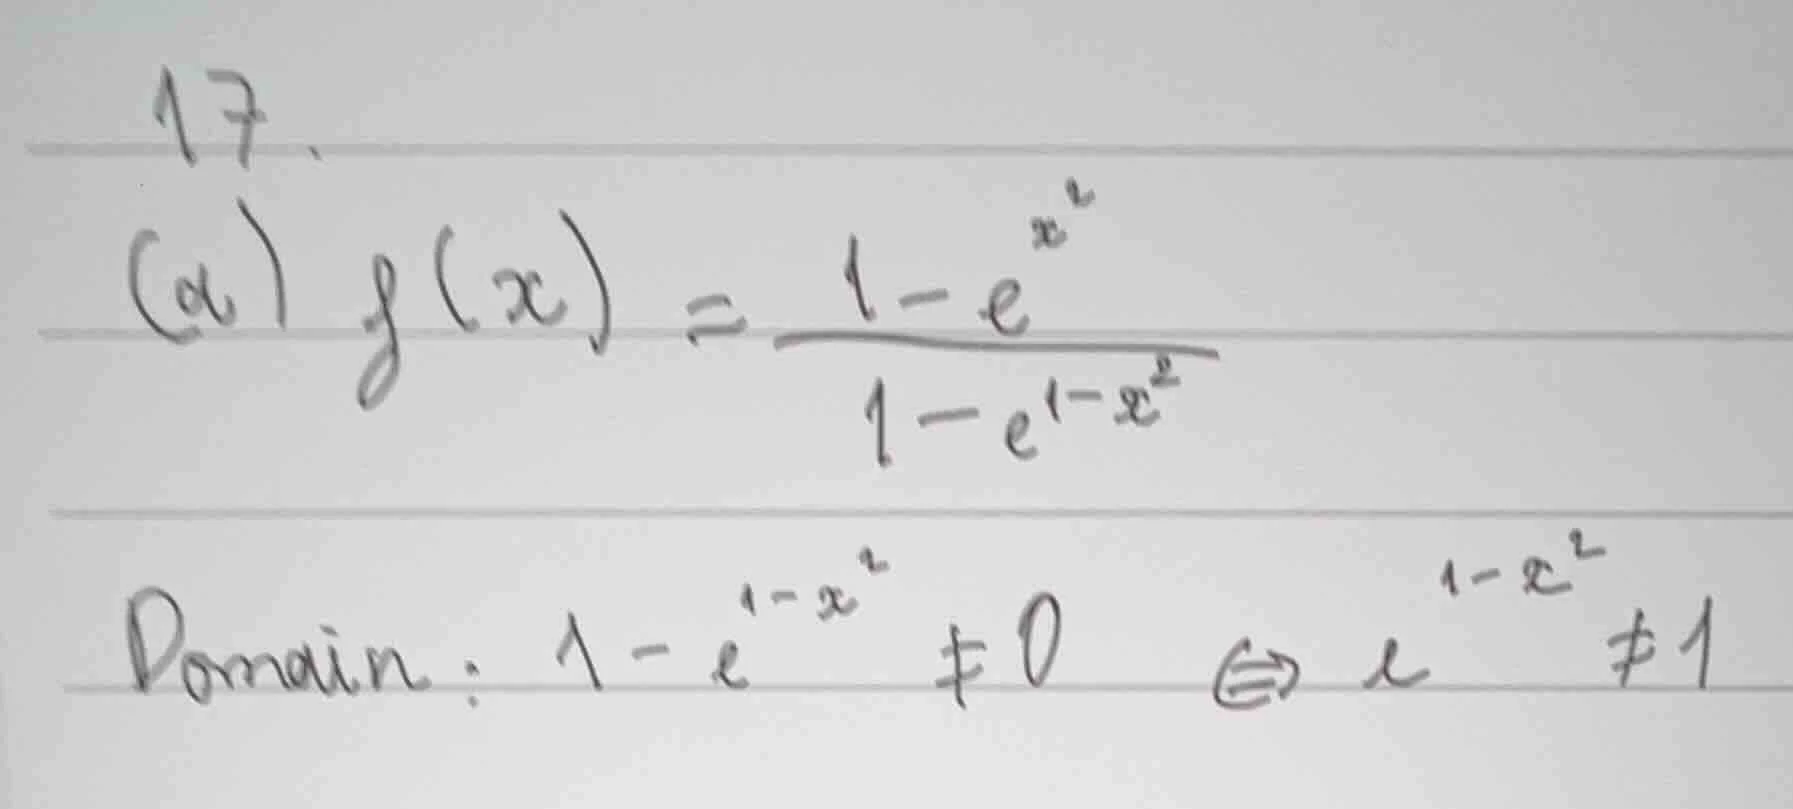 17.
(a) f(x) = \frac{1-e^{x^2}}{1-e^{1-x^2}}
Domain: 1-e^{1-x^2} ≠ 0 ⇔ e^{1-x^2} ≠ 1